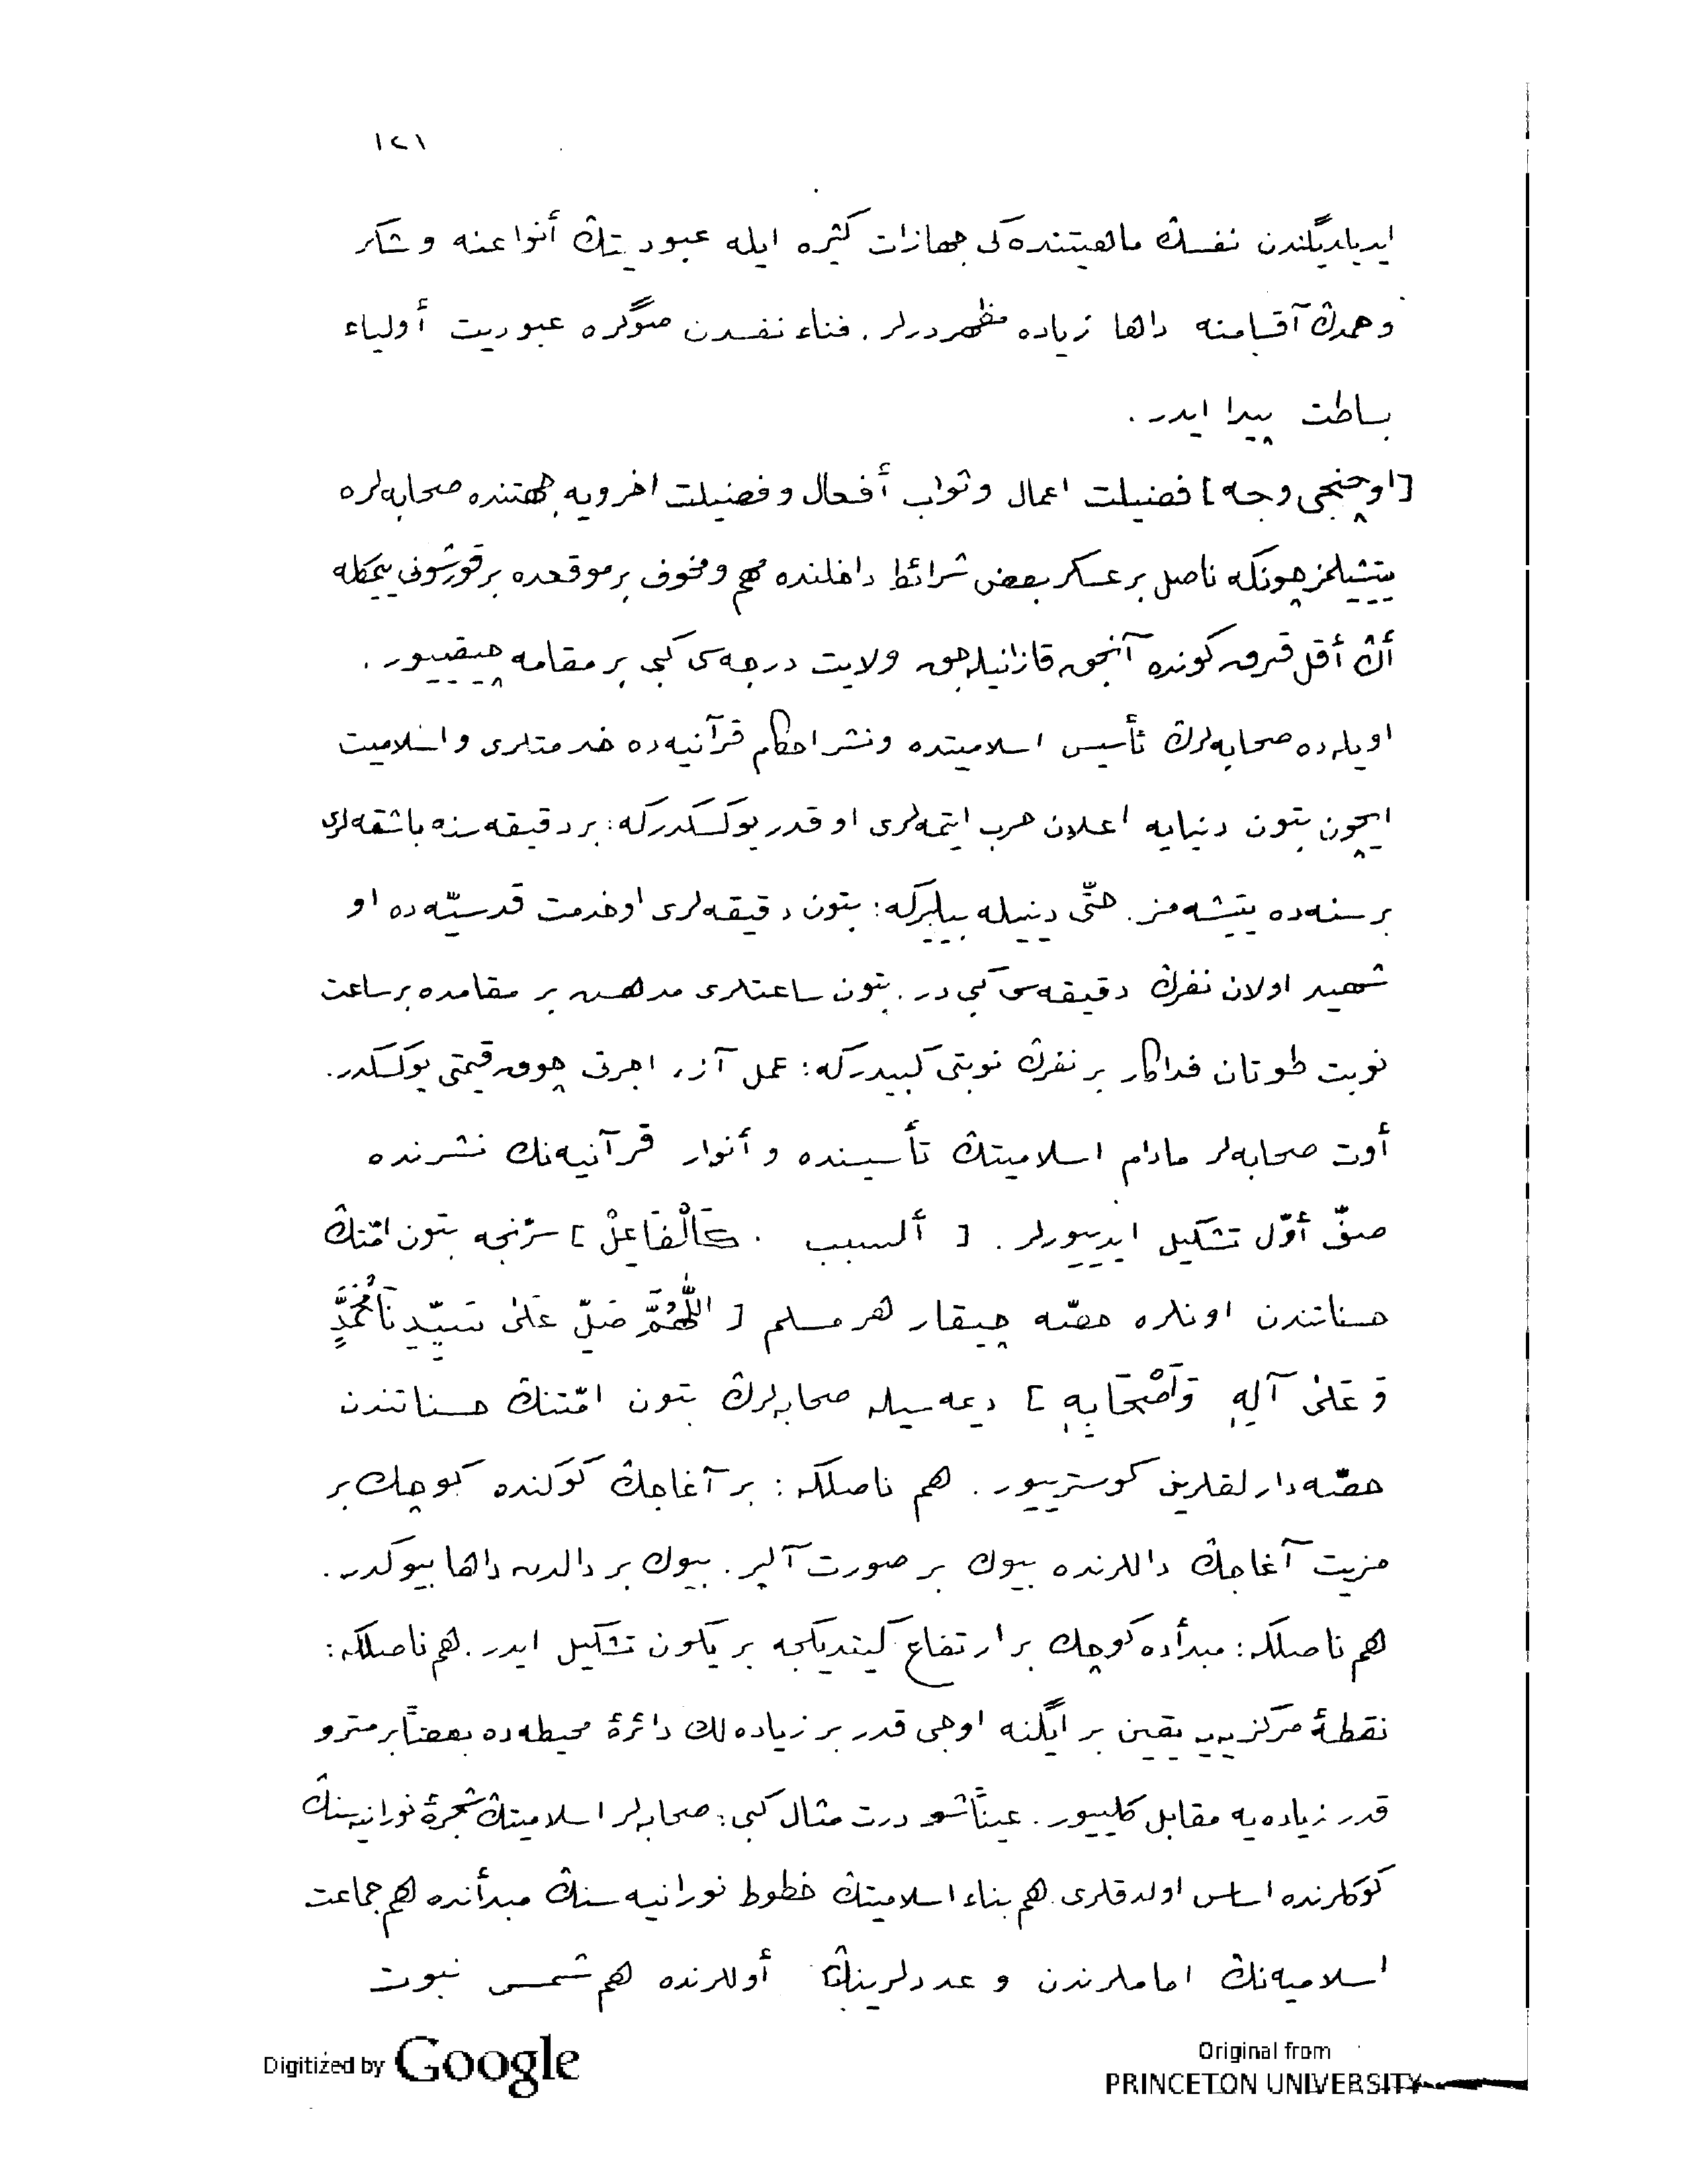 ١٢١
ايديلديگندن نفسڭ ماهيتنده‌كى جهازات كثيره ايله عبوديتڭ أنواعنه و شكر
و حمدڭ آقسامنه داها زياده مظهردرلر. فناء نفسدن صوڭره عبوديت أولياء
بساطت پيدا ايدر.
[اوچنجى وجه] فضيلت اعمال و ثواب أفعال و فضيلت اخرويه جهتنده صحابه‌لره
يتيشيلمز چونكه ناصل بر عسكر بعض شرائط داخلنده مهم و مخوف بر موقعده
أڭ أقل قرق كونده آنجق قازانيله‌جق ولايت درجه‌سى كبى بر مقامه چيقييور.
اويله‌ده صحابه‌لرڭ تأسيس اسلاميتده و نشر احكام قرآنيه‌ده خدمتلرى و اسلاميت
ايچون بتون دنيايه اعلان حرب ايتمه‌لرى او قدر يوكسكدركه: بر دقيقه‌سنه باشقه‌لرى
بر سنه‌ده يتيشه‌مز. حتّى دينيله بيليركه: بتون دقيقه‌لرى او خدمت قدسيّه‌ده او
شهيد اولان نفرڭ دقيقه‌سى كبى‌در. بتون ساعتلرى مدهش بر مقامده بر ساعت
نوبت طوتان فداكار بر نفرڭ نوبتى كبيدركه: عمل آز، اجرتى چوق، قيمتى يوكسكدر.
أوت صحابه‌لر مادام اسلاميتڭ تأسيسنده و أنوار قرآنيه‌نڭ نشرنده
صفّ أوّل تشكيل ايدييورلر. [ ألسبب كَالْفَاعِلْ ] سرّنجه بتون امّتڭ
حسناتندن اونلره حصّه چيقار هر مسلم [ اَللّٰهُمَّ صَلِّ عَلٰى سَيِّدِنَا مُحَمَّدٍ
وَ عَلٰى آلِهٖ وَاَصْحَابِهٖ ] ديمه‌سيله صحابه‌لرڭ بتون امّتنڭ حسناتندن
حصّه‌دارلقلرين كوسترييور. هم ناصلكه: بر آغاجڭ كوكنده كوچك بر
مزيت آغاجڭ داللرنده بيوك بر صورت آلير. بيوك بر دالدن داها بيوكدر.
هم ناصلكه: مبدأده كوچك بر ارتفاع كيتديكجه بر يكون تشكيل ايدر. هم ناصلكه:
نقطۀ مركزييه يقين بر ايگنه اوجى قدر بر زياده‌لك دائرۀ محيطه‌ده بعضًا بر مترو
قدر زياده‌يه مقابل كلييور. عينًا شو درت مثال كبى: صحابه‌لر اسلاميتڭ شجرۀ نورانيه‌سنڭ
كوكلرنده اساس اولدقلرى هم بناء اسلاميتڭ خطوط نورانيه‌سنڭ مبدأنده هم جماعت
اسلاميه‌نڭ اماملرندن و عددلرينڭ أوللرنده هم شمس نبوت
Digitized by Google
Original from
PRINCETON UNIVERSITY